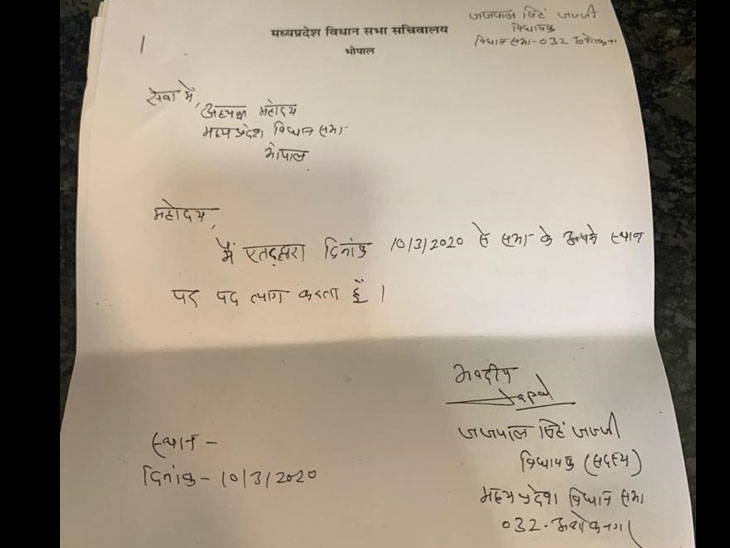 मध्यप्रदेश विधान सभा सचिवालय
भोपाल
जजपाल सिंह जज्जी
विधायक
विधान सभा-032 अशोकनगर
सेवा में,
अध्यक्ष महोदय
मध्यप्रदेश विधान सभा
भोपाल
महोदय,
मैं एतद्द्वारा दिनांक 10/3/2020 से सभा के अपने स्थान
पर पद त्याग करता हूँ।
भवदीय
Jajpal
जजपाल सिंह जज्जी
विधायक (सदस्य)
मध्यप्रदेश विधान सभा
032. अशोकनगर
स्थान -
दिनांक - 10/3/2020